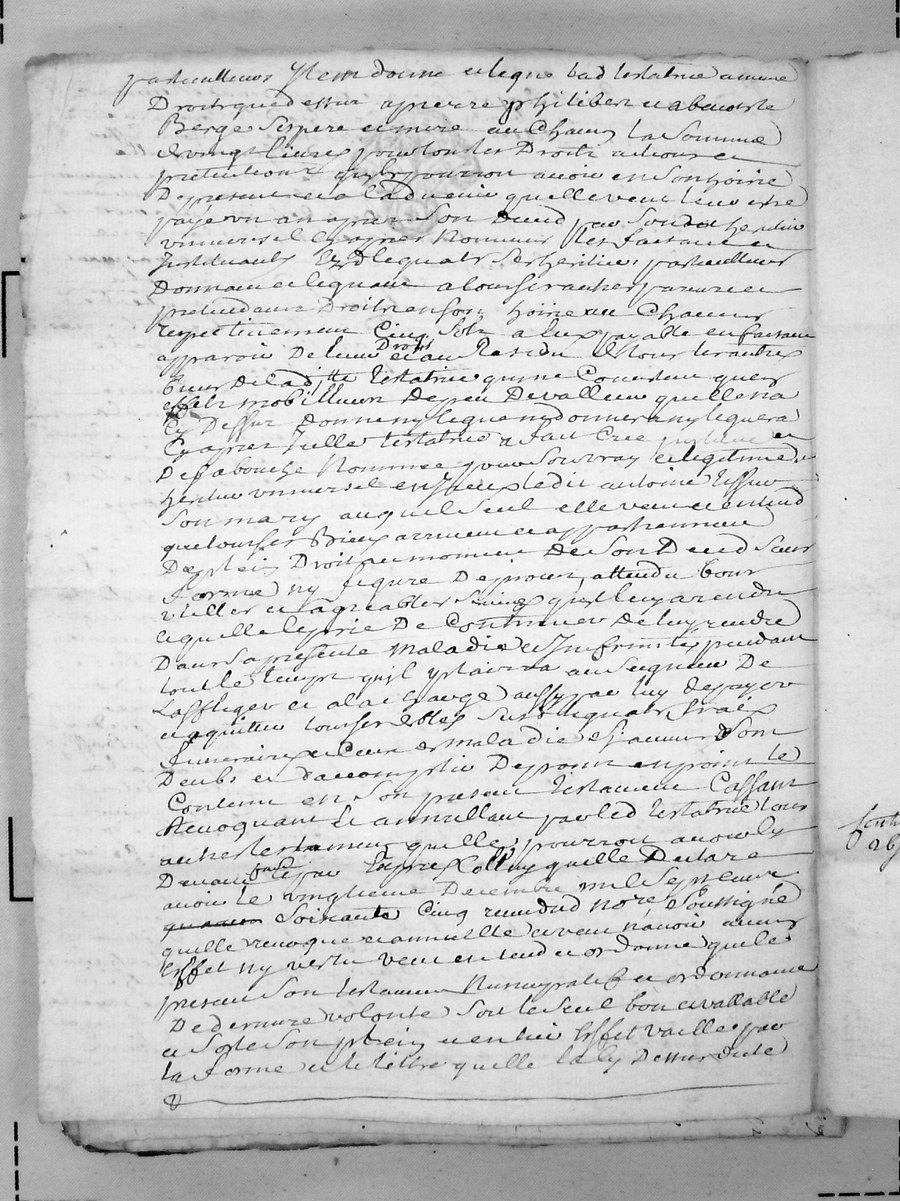 particulliers Item donne et legue lad testatrice a mme
Droits que dessus a pierre philibert et a benoiste
Berge ses pere et mere au Chacun la Somme
de vingt livres pour tous les Droits actions et
pretentions quils pourront avoir en son hoirie
De present et a Ladvenir quelle veut leur etre
payé un an apres Son Deced par Sond heritier
universel Cy apres Nommé Les faisant et
Instituants Lesd legats Ses heritiers particulliers
Donnant et leguant a tous les autres parans et
pretendants Droits en son hoirie au Chacun
respectivement Cinq Sols a Eux payable en faisant
apparoir De leurs Droits et au Residu de tous les autres
biens De ladite testatrice qui ne Consistent quen
effets mobilliers De peu De valleur quelle na
Cy Dessus Donné ny legué ny donnera ny leguera
Cy apres Icelle testatrice a fait Creé institué et
De sa bouche Nommé pour Son vray et legitime
heritier universel en Iceux ledit antoine
Son mary auquel Seul elle veut et entend
que tous ses Biens arrivent et appartiennent
De plein Droit au moment de Son Deced Sans
forme ny figure De proces, attendu les bons
et agreables services quil luy a rendu
et quelle le prie De Continuer de luy rendre
Dans Sa presente maladie et Infirmités pendant
tout le temps quil plaira au Seigneur De
Laffliger et a la charge aussy par luy de payer
et aquitter tous ses debtes Susd legats fraix
funeraires et Ceux de maladie Si aucuns Sont
Deubs et d'accomplir De point en point le
Contenu en Son present testament Cassant
Revoquant et annullant par lad testatrice tous
autres testaments quelle pourroit avoir Cy
Devant fait par Expres Celluy quelle Declare
avoir le vingtieme Decembre mil Sept Cent
Soixante Cinq receu dud nore Soussigné
quelle revoque et annulle et veut navoir aucun
Effet ny vertu veut entend et ordonne que le
present Son testament Nuncupatif et ordonnance
De derniere volonté Soit le Seul bon et vallable
et Sorte Son plein et entier Effet vaille par
la forme et le titre quelle la Cy Dessus dicte